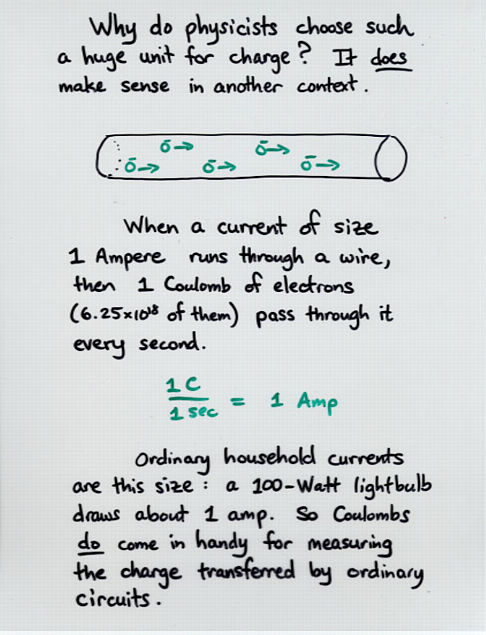 Why do physicists choose such
a huge unit for charge? It does
make sense in another context.
When a current of size
1 Ampere runs through a wire,
then 1 Coulomb of electrons
(6.25×10¹⁸ of them) pass through it
every second.
1 C
1 sec = 1 Amp
Ordinary household currents
are this size: a 100-Watt lightbulb
draws about 1 amp. So Coulombs
do come in handy for measuring
the charge transferred by ordinary
circuits.